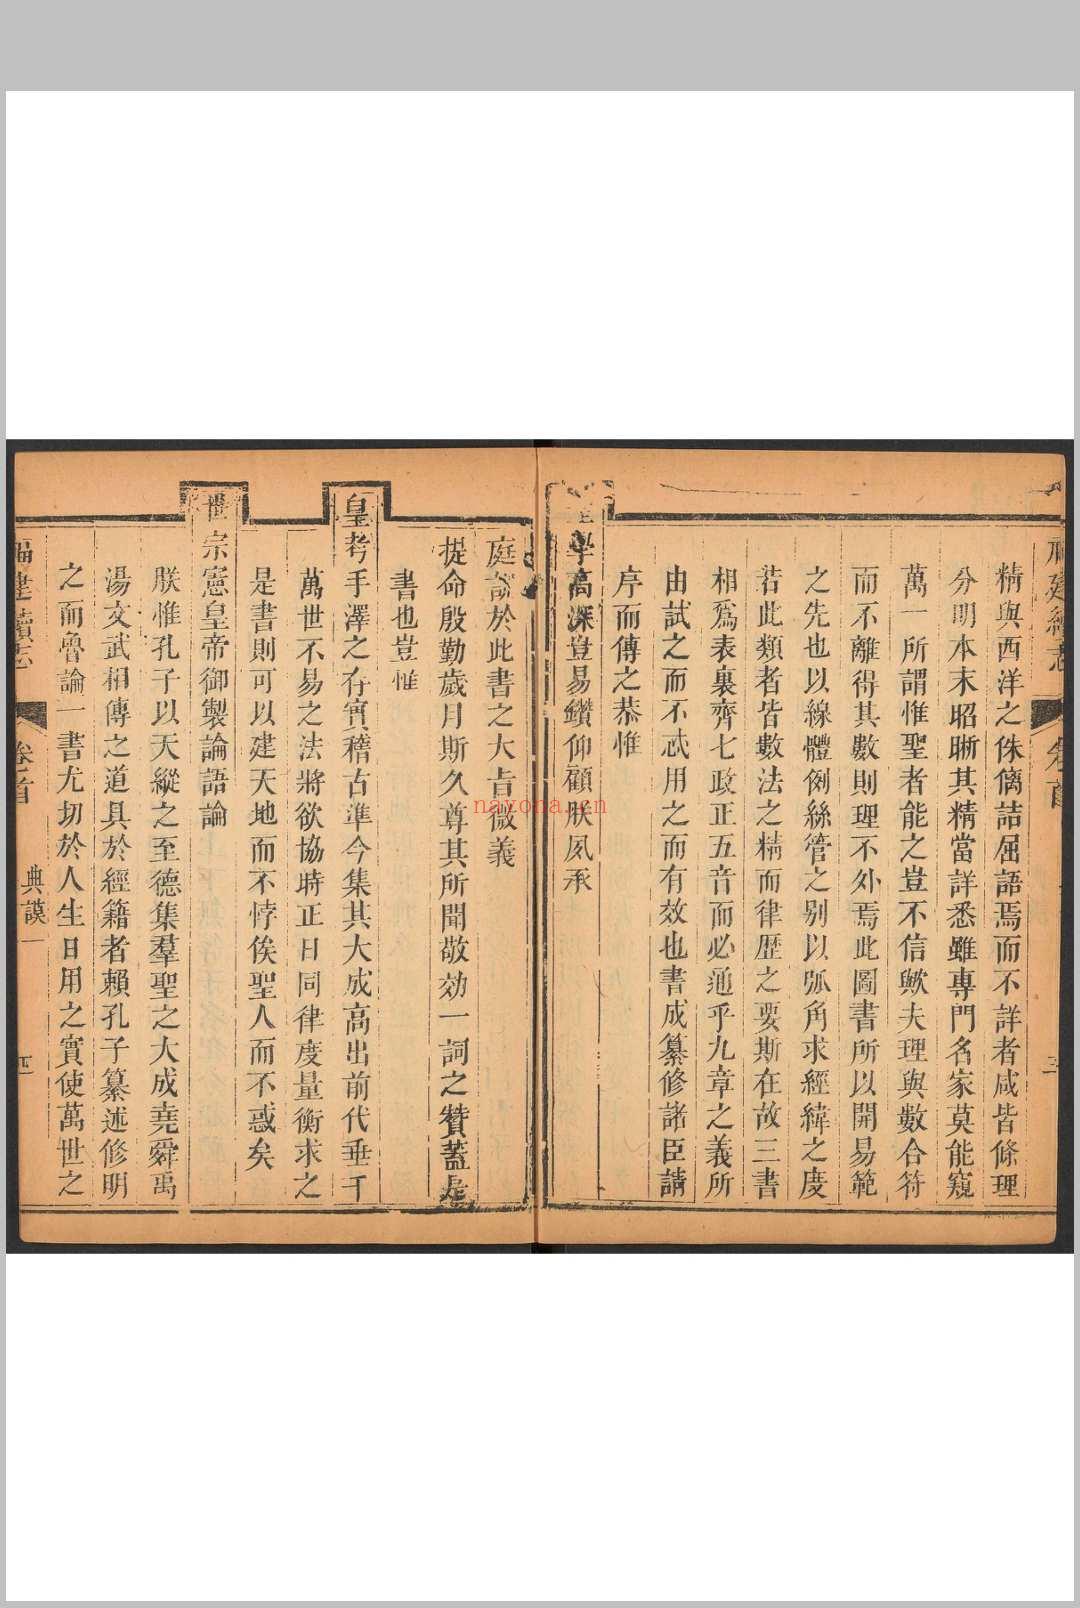 福建續志
卷首
三
精與西洋之侏𠌯詰屈語焉而不詳者咸皆條理
分明本末昭晰其精當詳悉雖專門名家莫能窺
萬一所謂惟聖者能之豈不信歟夫理與數合符
而不離得其數則理不外焉此圖書所以開易範
之先也以線體例絲管之别以弧角求經緯之度
若此類者皆數法之精而律歷之要斯在故三書
相爲表裏齊七政正五音而必通乎九章之義所
由試之而不忒用之而有效也書成纂修諸臣請
序而傳之恭惟
聖學高深豈易鑽仰顧朕夙承
庭訓於此書之大旨微義
提命殷勤歲月斯久尊其所聞敬効一詞之贊蓋是
書也豈惟
皇考手澤之存實稽古準今集其大成高出前代垂千
萬世不易之法將欲協時正日同律度量衡求之
是書則可以建天地而不悖俟聖人而不惑矣
世宗憲皇帝御製論語論
朕惟孔子以天縱之至德集羣聖之大成堯舜禹
湯文武相傳之道具於經籍者賴孔子纂述修明
之而魯論一書尤切於人生日用之實使萬世之
福建續志
卷首
典謨一
四
nayona.cn